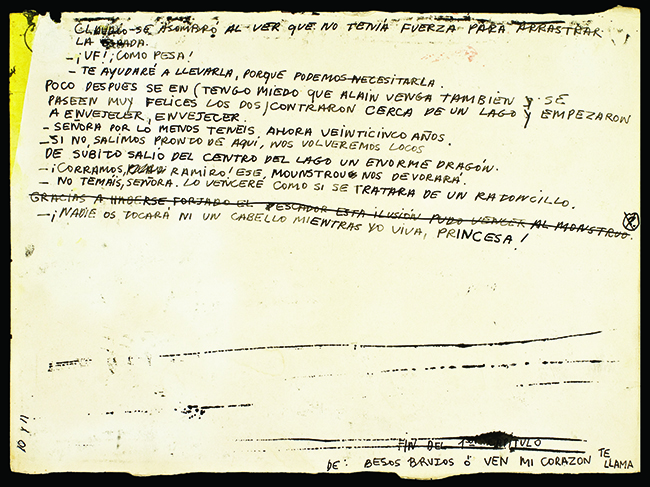 SE ASOMBRÓ AL VER QUE NO TENÍA FUERZA PARA ARRASTRAR
LA
-¡UF!¡COMO PESA!
- TE AYUDARÉ A LLEVARLA, PORQUE PODEMOS NECESITARLA.
POCO DESPUES SE EN (TENGO MIEDO QUE ALAIN VENGA TAMBIEN Y SE
PASEEN MUY FELICES LOS DOS) CONTRARON CERCA DE UN LAGO Y EMPEZARON
A ENVEJECER, ENVEJECER.
- SEÑORA POR LO MENOS TENÉIS, AHORA VEINTICINCO AÑOS.
- SI NO, SALIMOS PRONTO DE AQUÍ, NOS VOLVEREMOS LOCOS
DE SÚBITO SALIÓ DEL CENTRO DEL LAGO UN ENORME DRAGÓN.
-¡CORRAMOS, RAMIRO! ESE, MOUNSTRUO NOS DEVORARÁ.
- NO TEMÁIS, SEÑORA. LO VENCERÉ COMO SI SE TRATARA DE UN RADONCILLO.
GRACIAS A HABERSE FORJADO EL PESCADOR ESTA ILUSIÓN PUDO VENCER AL MONSTRUO.
-¡NADIE OS TOCARÁ NI UN CABELLO MIENTRAS YO VIVA, PRINCESA!
FIN DEL 1º CAPÍTULO
DE: BESOS BRUJOS Ó VEN MI CORAZON TE LLAMA